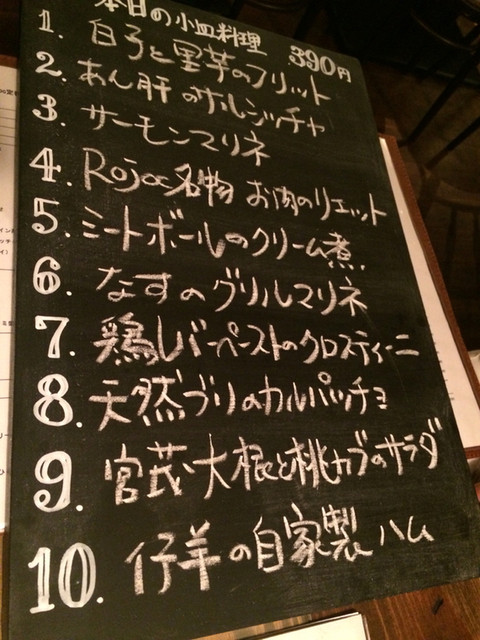 本日の小皿料理 390円
1. 白子と里芋のフリット
2. あん肝のサルシッチャ
3. サーモンマリネ
4. Rojac名物 お肉のリエット
5. ミートボールのクリーム煮
6. なすのグリルマリネ
7. 鶏レバーペーストのクロスティーニ
8. 天然ブリのカルパッチョ
9. 宮茂大根と桃カブのサラダ
10. 仔羊の自家製ハム